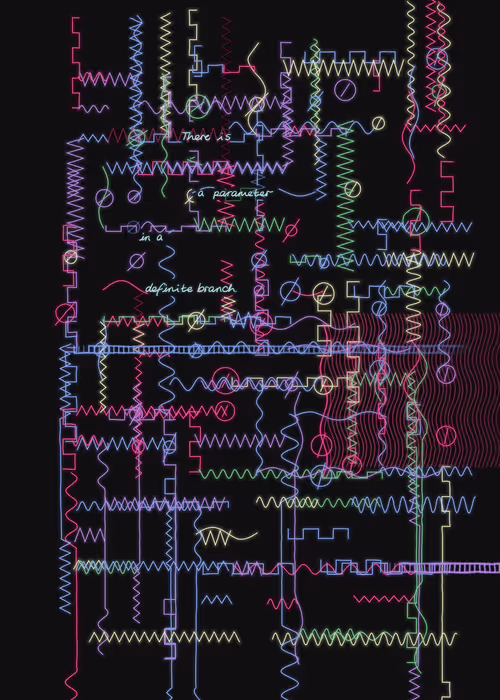 There is
a parameter
in a
definite branch